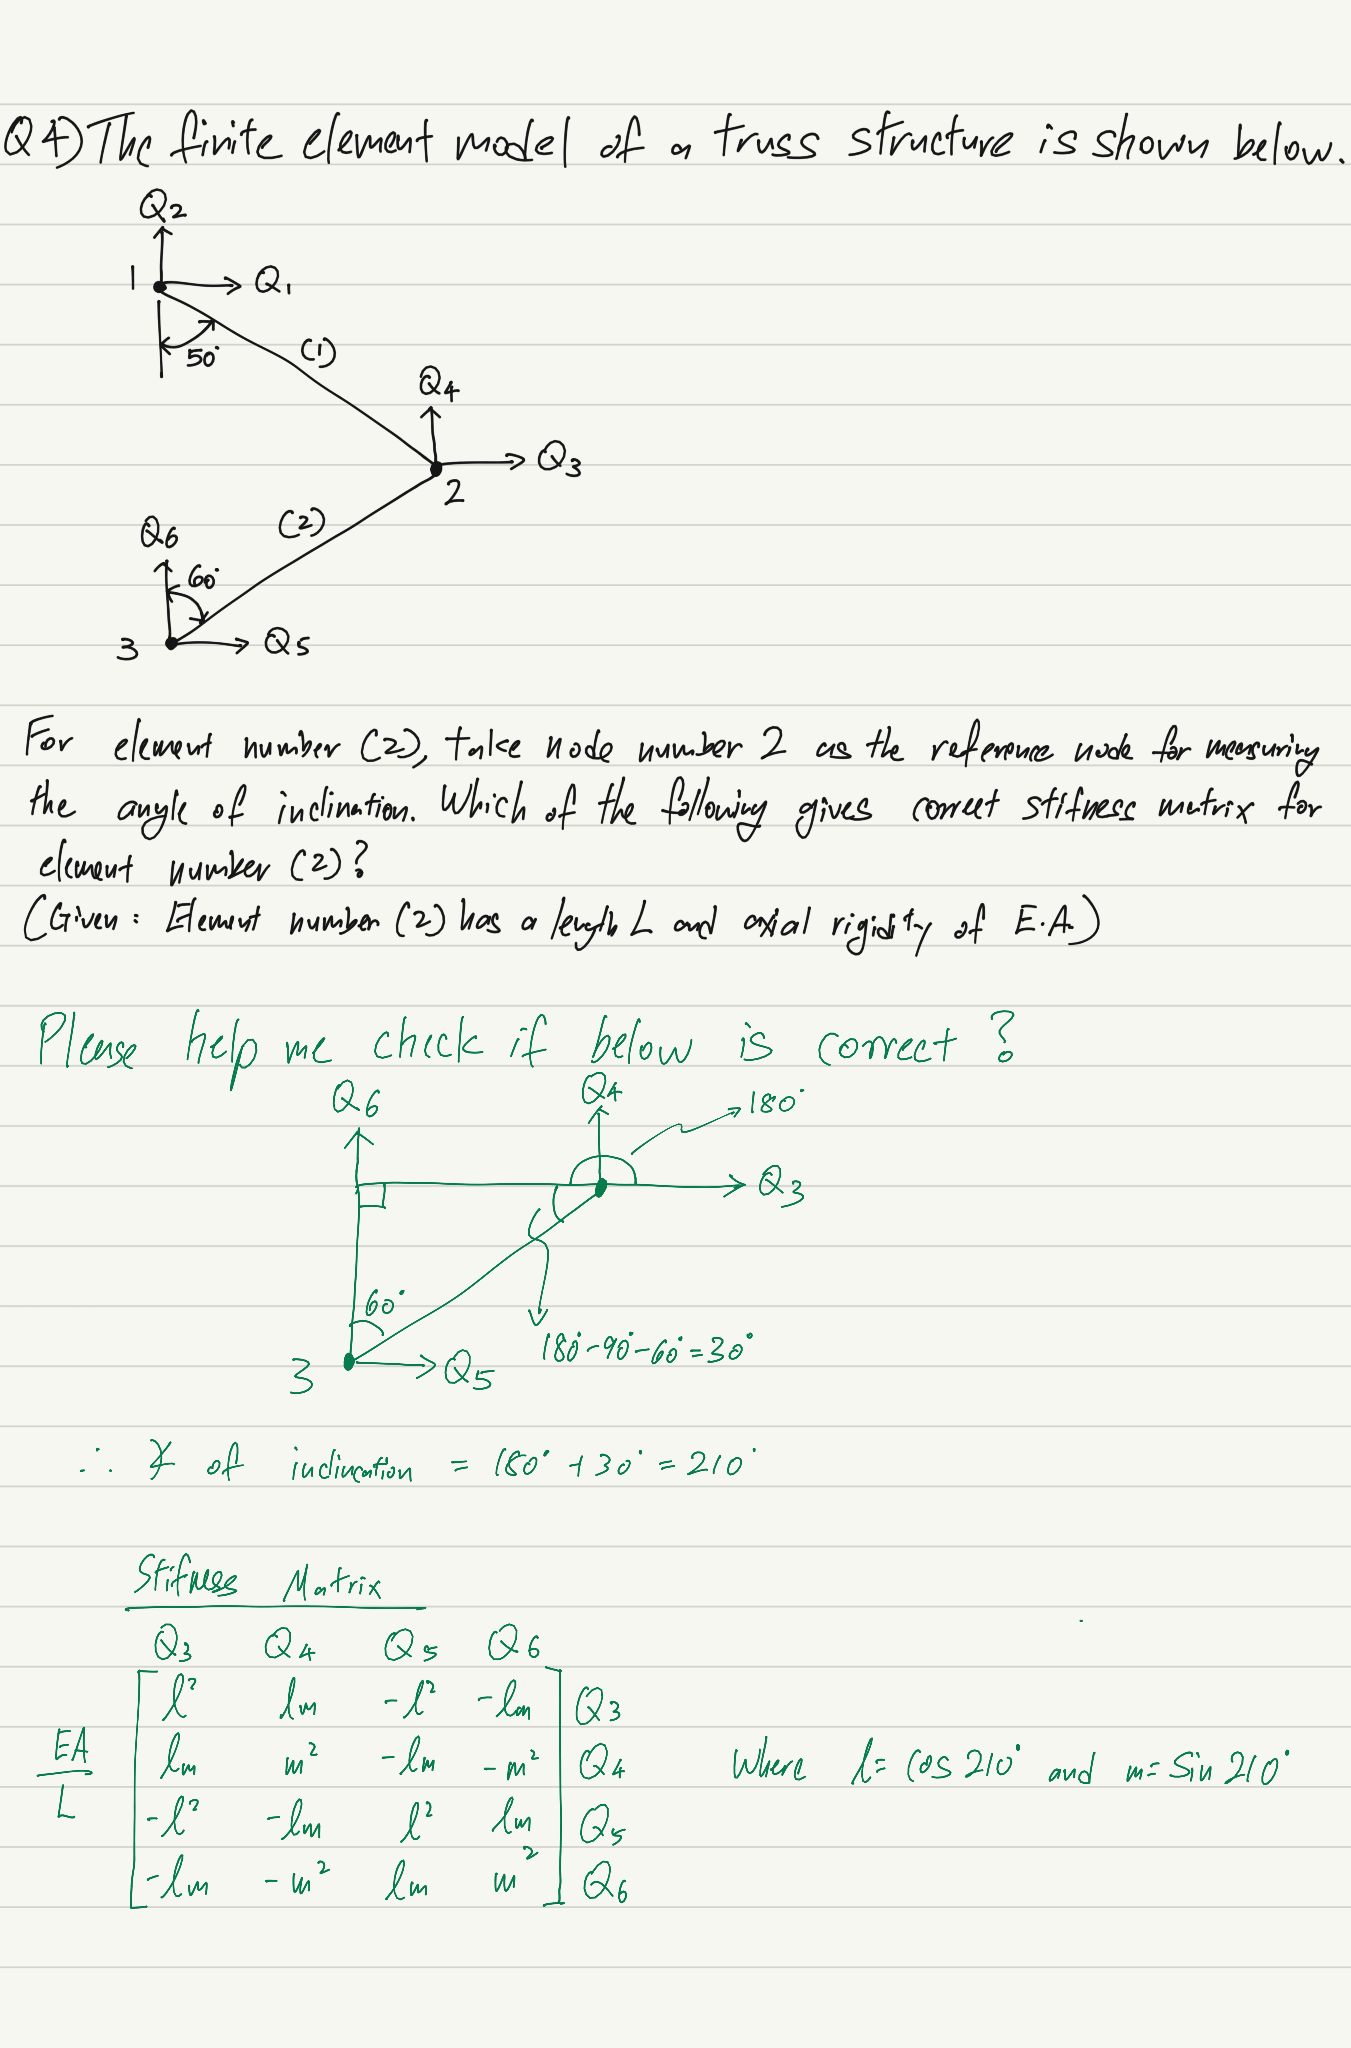 Q4) The finite element model of a truss structure is shown below.
Q2
1
Q1
50°
(1)
Q4
Q3
2
(2)
Q6
60°
3
Q5
For element number (2), take node number 2 as the reference node for measuring
the angle of inclination. Which of the following gives correct stifness matrix for
element number (2)?
(Given: Element number (2) has a length L and axial rigidity of E.A)
Please help me check if below is correct?
Q6
Q4
180°
Q3
60°
180°-90°-60°=30°
3
Q5
∴ ∡ of inclination = 180° + 30° = 210°
Stifness Matrix
Q3 Q4 Q5 Q6
l² lm -l² -lm Q3
EA/L
lm m² -lm -m² Q4
Where l = cos 210° and m = Sin 210°
-l² -lm l² lm Q5
-lm -m² lm m² Q6